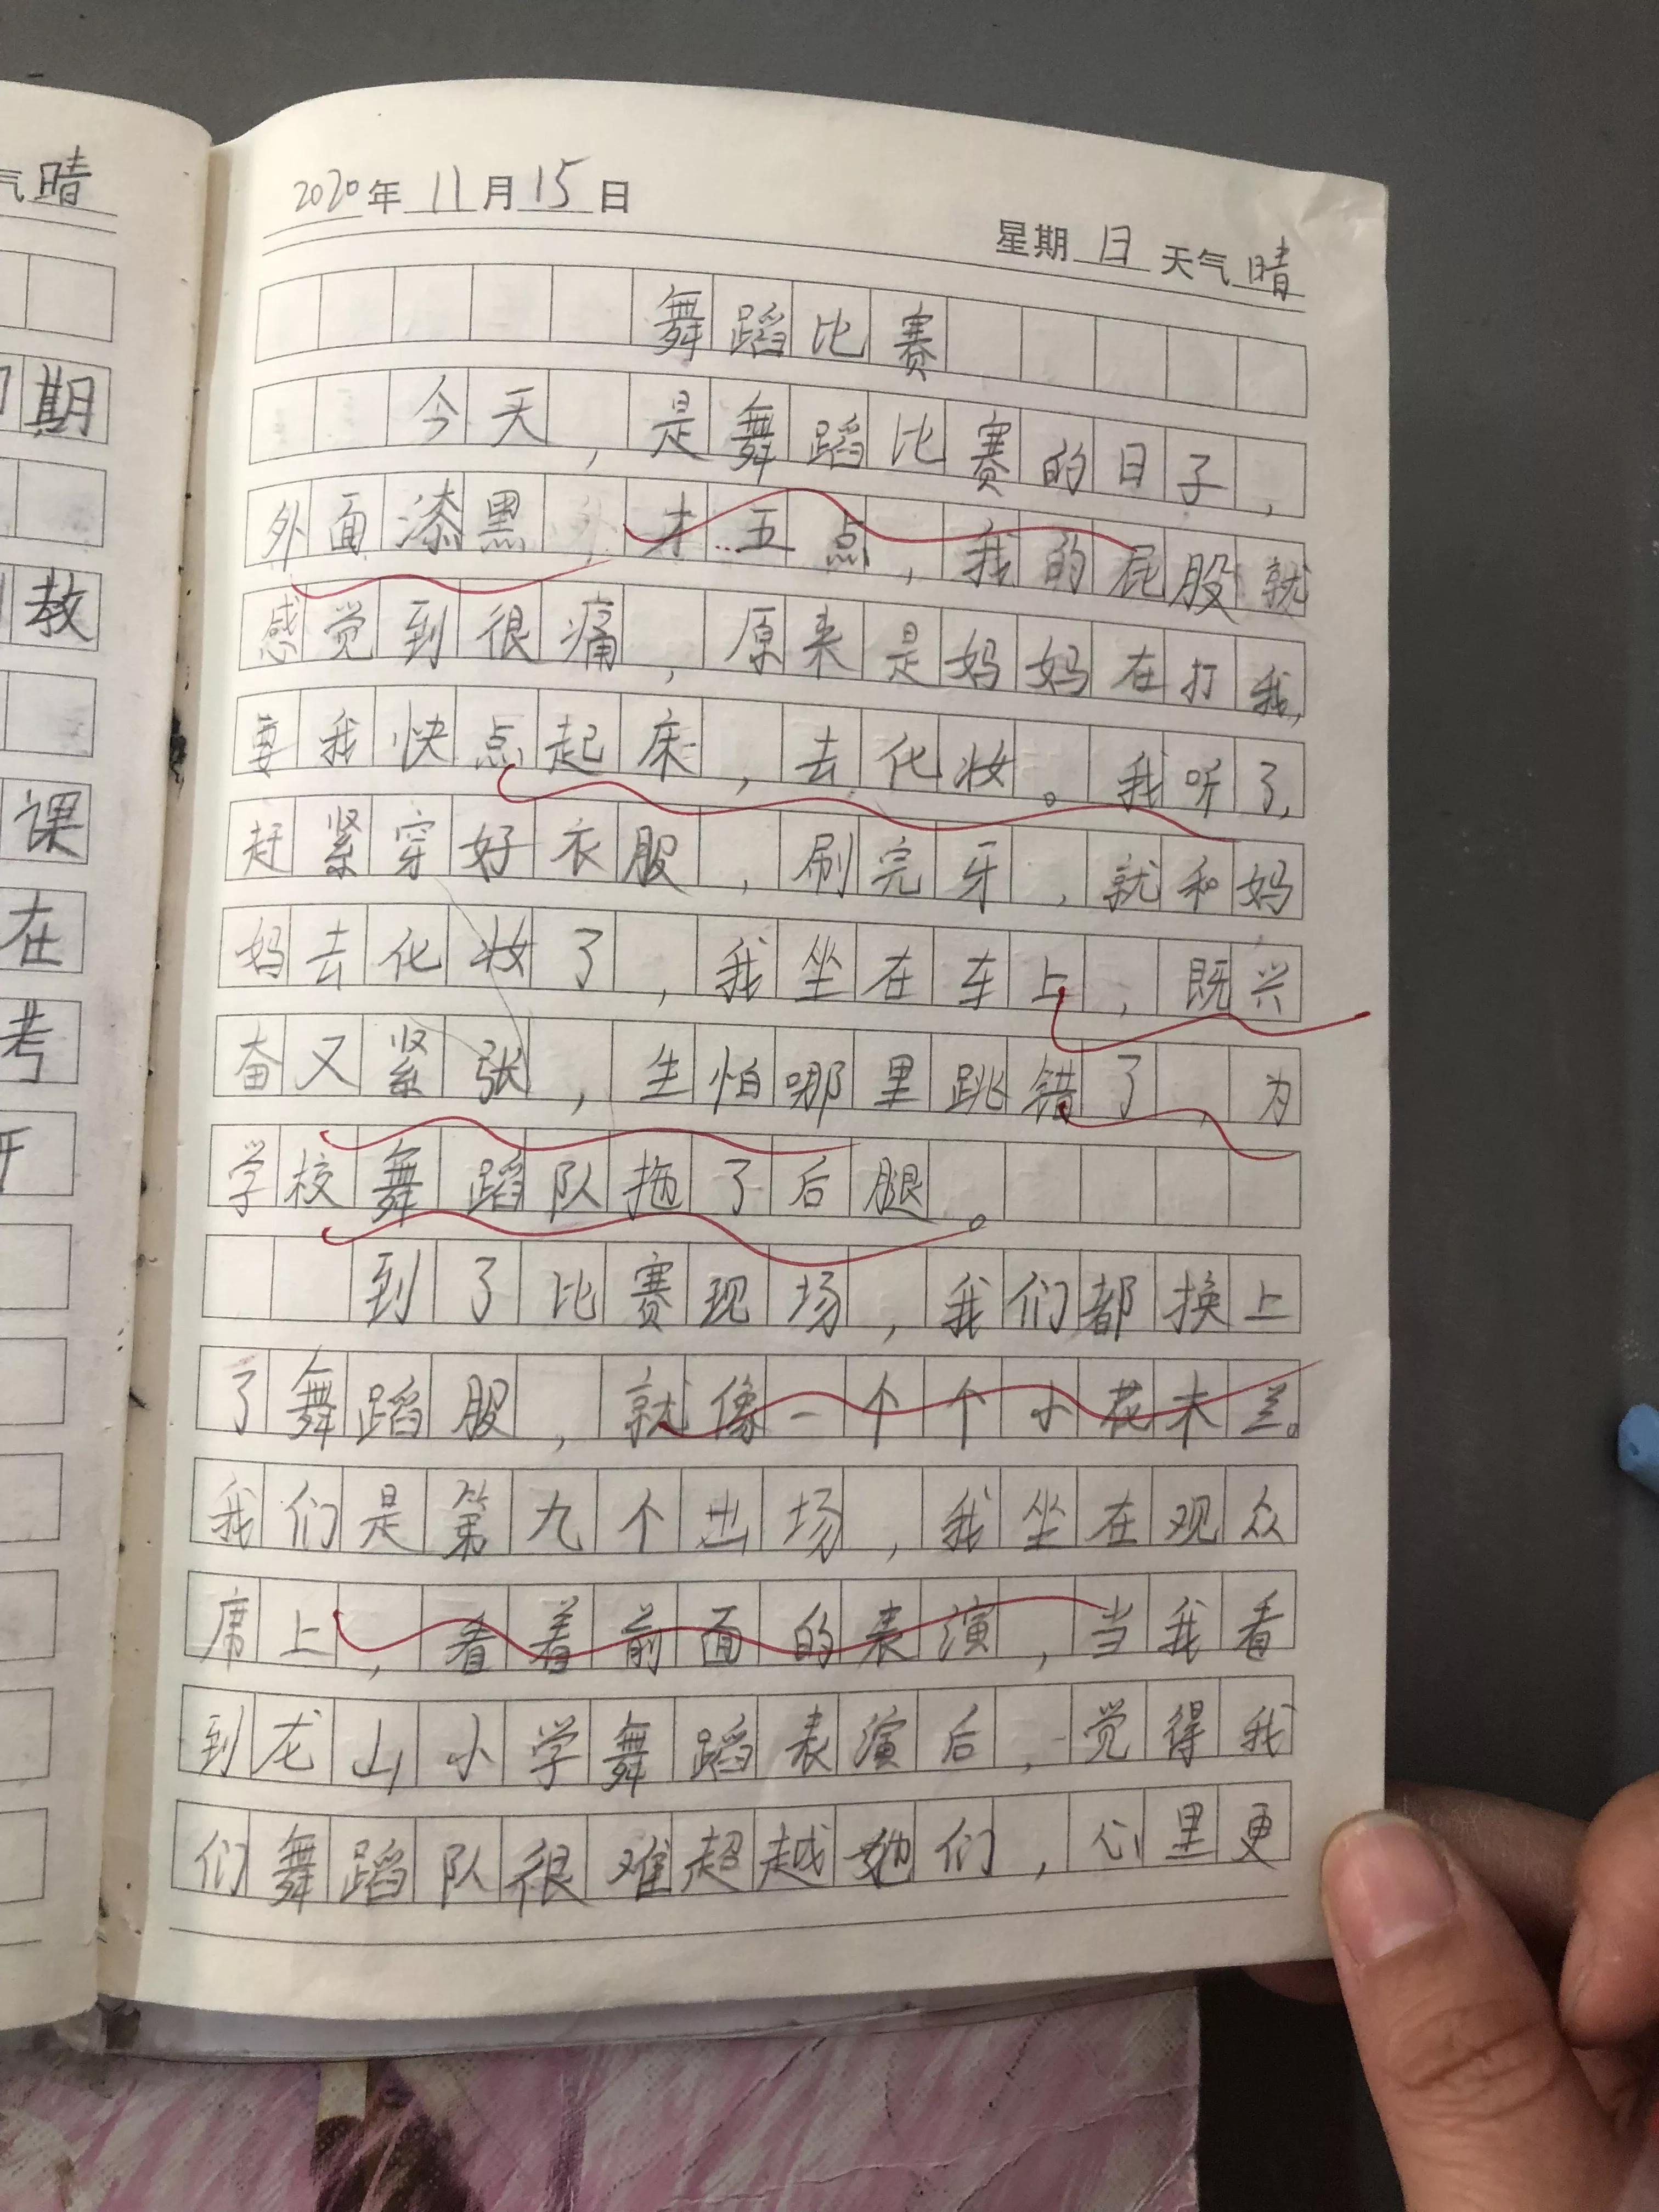 气晴
期
教
课
在
考
2020年11月15日
星期日 天气晴
舞蹈比赛
今天，是舞蹈比赛的日子，
外面漆黑 才五点，我的屁股就
感觉到很痛，原来是妈妈在打我，
要我快点起床，去化妆。我听了，
赶紧穿好衣服，刷完牙，就和妈
妈去化妆了，我坐在车上，既兴
奋又紧张，生怕哪里跳错了，为
学校舞蹈队拖了后腿。
到了比赛现场，我们都换上
了舞蹈股，就像一个个小花木兰。
我们是第九个出场，我坐在观众
席上，看着前面的表演，当我看
到龙山小学舞蹈表演后，觉得我
们舞蹈队很难超越她们，心里更